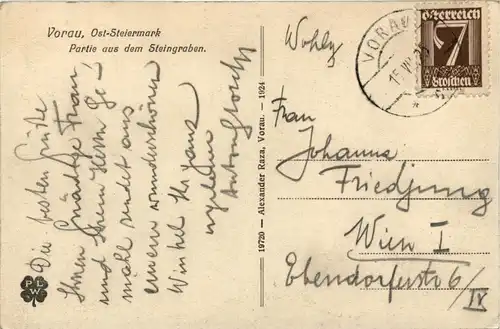 Vorau, Ost-Steiermark
Partie aus dem Steingraben.
Die besten Grüße
Ihnen Gnädige Frau
und Ihrem Herrn Ge-
mahl sendet aus
einem wunderschönen
Winkl
19720 – Alexander Raza, Vorau. – 1924
P L
W
VORAU
Österreich
7
Groschen
Frau
Johanna
Friedjung
Wien I
Ebendorferstr 6/
IV